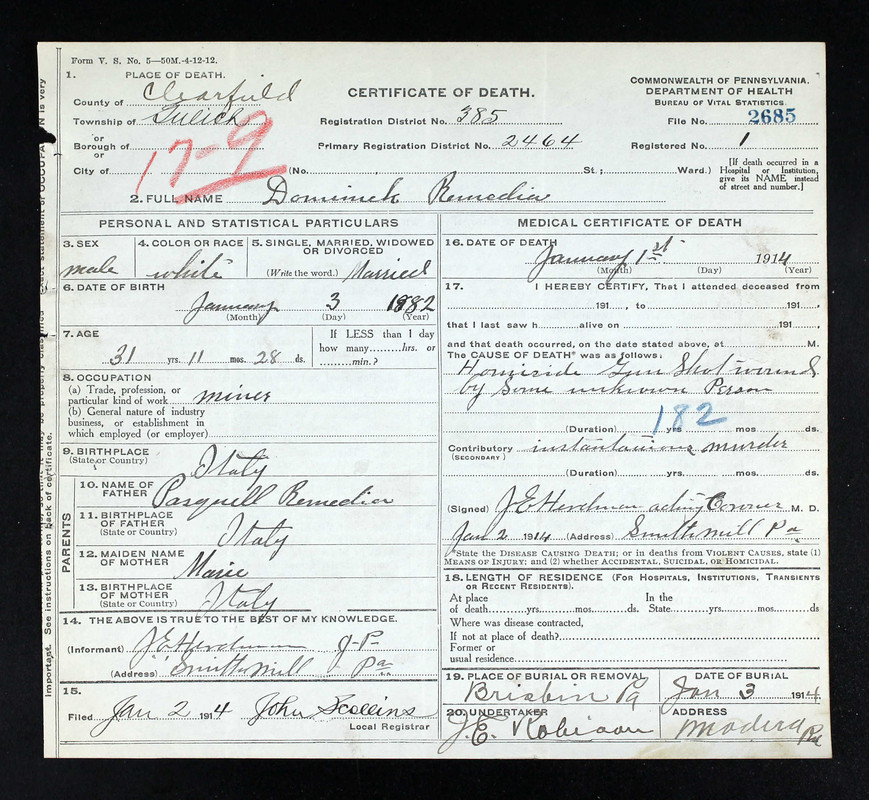 Form V. S. No. 5—50M.-4-12-12.
1. PLACE OF DEATH.
County of Clearfield
Township of Gulich
or
Borough of
or
City of
17-9
CERTIFICATE OF DEATH.
Registration District No. 385
Primary Registration District No. 2464
(No. , St.; Ward.)
COMMONWEALTH OF PENNSYLVANIA.
DEPARTMENT OF HEALTH
BUREAU OF VITAL STATISTICS.
File No. 2685
Registered No. 1
[If death occurred in a
Hospital or Institution,
give its NAME instead
of street and number.]
2. FULL NAME Dominick Remedia
PERSONAL AND STATISTICAL PARTICULARS
3. SEX
male
4. COLOR OR RACE
white
5. SINGLE, MARRIED, WIDOWED
OR DIVORCED
(Write the word.) Married
6. DATE OF BIRTH
January 3 1882
(Month) (Day) (Year)
7. AGE
31 yrs. 11 mos. 28 ds.
If LESS than 1 day
how many hrs. or
min.?
8. OCCUPATION
(a) Trade, profession, or
particular kind of work miner
(b) General nature of industry
business, or establishment in
which employed (or employer)
9. BIRTHPLACE
(State or Country) Italy
PARENTS
10. NAME OF
FATHER Pasquell Remedia
11. BIRTHPLACE
OF FATHER
(State or Country) Italy
12. MAIDEN NAME
OF MOTHER Marie
13. BIRTHPLACE
OF MOTHER
(State or Country) Italy
14. THE ABOVE IS TRUE TO THE BEST OF MY KNOWLEDGE.
(Informant) J E Herdman J-P-
(Address) Smithmill Pa
15.
Filed Jan 2 1914 John Scollins
Local Registrar
MEDICAL CERTIFICATE OF DEATH
16. DATE OF DEATH
January 1st 1914
(Month) (Day) (Year)
17. I HEREBY CERTIFY, That I attended deceased from
191 , to 191 ,
that I last saw h alive on 191 ,
and that death occurred, on the date stated above, at M.
The CAUSE OF DEATH* was as follows:
Homicide Gun Shot wound
by Some unknown Person
182
(Duration) yrs mos. ds.
Contributory instantanious murder
(SECONDARY)
(Duration) yrs. mos. ds.
(Signed) J E Herdman acting Coroner M. D.
Jan 2 1914 (Address) Smithmill Pa
*State the DISEASE CAUSING DEATH; or in deaths from VIOLENT CAUSES, state (1)
MEANS OF INJURY; and (2) whether ACCIDENTAL, SUICIDAL OR HOMICIDAL.
18. LENGTH OF RESIDENCE (FOR HOSPITALS, INSTITUTIONS, TRANSIENTS
OR RECENT RESIDENTS).
At place In the
of death yrs. mos. ds. State yrs. mos. ds
Where was disease contracted,
If not at place of death?
Former or
usual residence
19. PLACE OF BURIAL OR REMOVAL
Brisbin Pa
DATE OF BURIAL
Jan 3 1914
20. UNDERTAKER
J. E. Robison
ADDRESS
Madera Pa
important. See instructions on back of certificate.